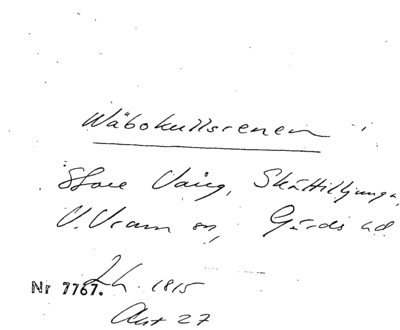 Wäbokullsrenen
Store Väng, Skättilljunga,
V. Vram sn, Gärds hd
Nr 7767. Lh. 1815
Akt 27